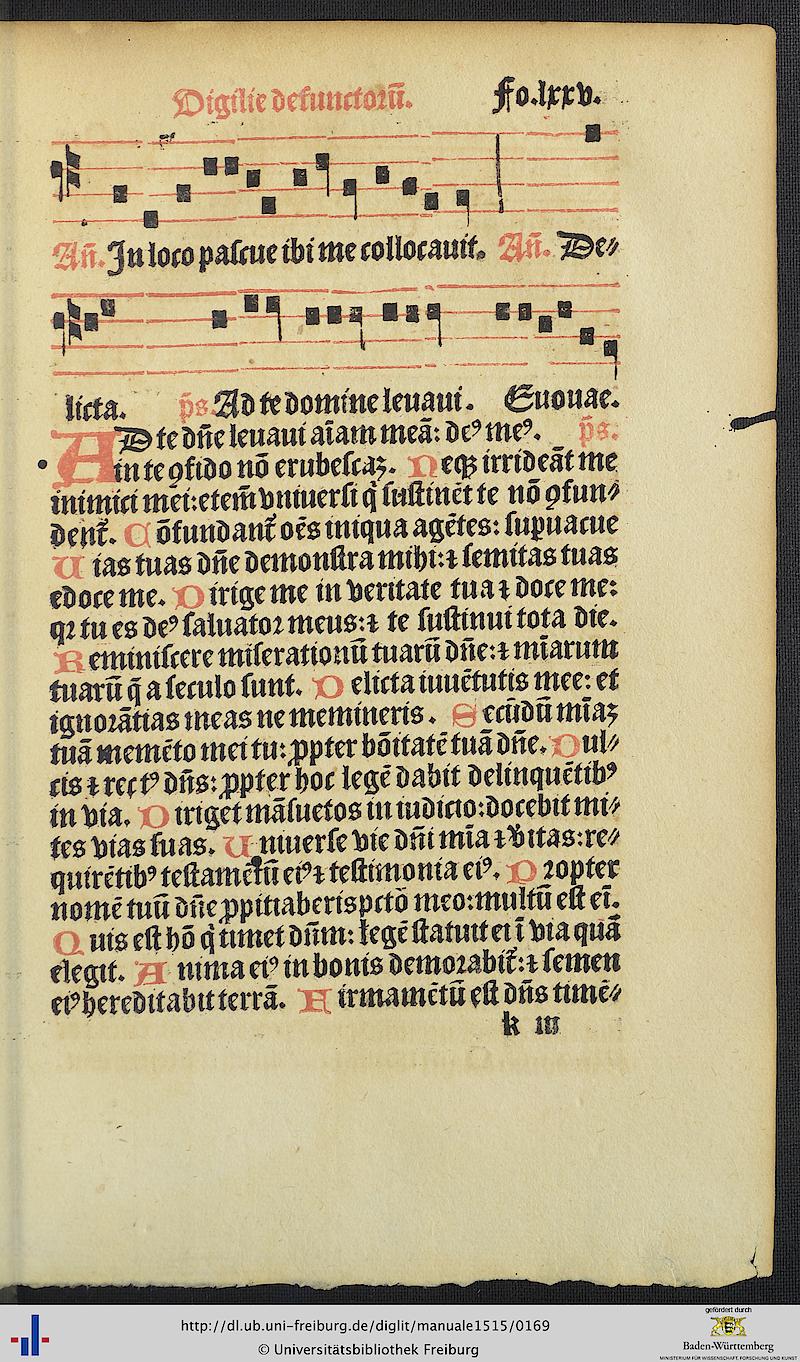 Vigilie defunctorū. Fo.lxxv.
An̄. In loco pascue ibi me collocauit. An̄. De⸗
licta. p̄s. Ad te domine leuaui. Euouae.
AD te dn̄e leuaui aīam meā: deꝰ meꝰ. p̄s.
in te ꝯfido nō erubescaꝫ. Neqꝫ irrideāt me
inimici mei: etem̄ vniuersi q̄ sustinēt te nō ꝯfun⸗
dent̄. Cōfundant̄ oēs iniqua agētes: supuacue
Uias tuas dn̄e demonstra mihi: ⁊ semitas tuas
edoce me. Dirige me in veritate tua ⁊ doce me:
qꝛ tu es deꝰ saluator meus: ⁊ te sustinui tota die.
Reminiscere miserationū tuarū dn̄e: ⁊ mīarum
tuarū q̄ a seculo sunt. Delicta iuuētutis mee: et
ignorātias meas ne memineris. Secūdū mīaꝫ
tuā memēto mei tu: ꝓpter bōitatē tuā dn̄e. Dul⸗
cis ⁊ rectꝰ dn̄s: ꝓpter hoc legē dabit delinquētibꝰ
in via. Diriget māsuetos in iudicio: docebit mi⸗
tes vias suas. Uniuerse vie dn̄i mīa ⁊ v̄itas: re⸗
quirētibꝰ testamētū eiꝰ ⁊ testimonia eiꝰ. Propter
nomē tuū dn̄e ꝓpitiaberis pctō meo: multū est eī.
Quis est hō q̄ timet dūm: legē statuit ei ī via quā
elegit. Anima eiꝰ in bonis demorabit̄: ⁊ semen
eiꝰ hereditabit terrā. Firmamētū est dn̄s timē⸗
k iii
http://dl.ub.uni-freiburg.de/diglit/manuale1515/0169
© Universitätsbibliothek Freiburg
gefördert durch
Baden-Württemberg
MINISTERIUM FÜR WISSENSCHAFT, FORSCHUNG UND KUNST